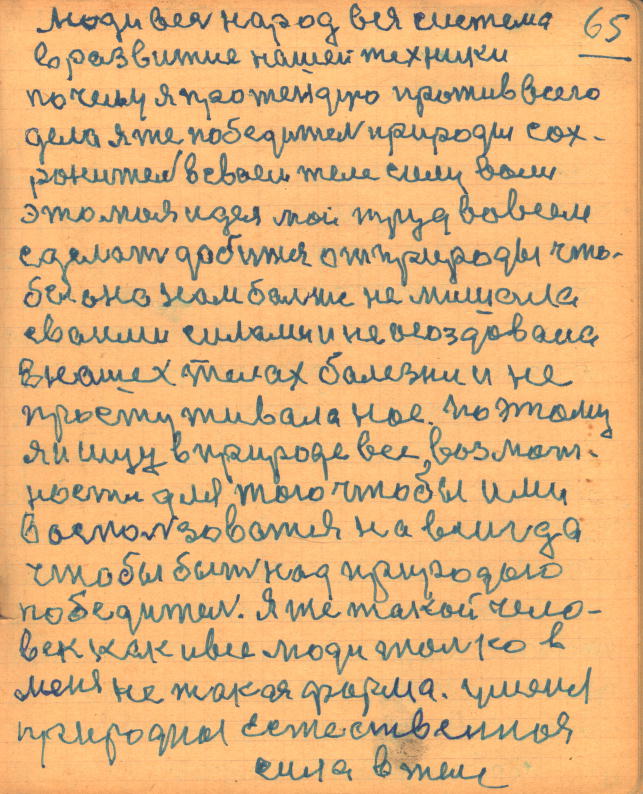 65
люди весь народ вся система
в развитие нашей техники
почему я протендую против всего
дела я же победител природы сох-
ронител в сваем теле силу воли
это моя идея мой труд вовсем
сделать добится от природы что-
бы она нам болше не мишала
сваими силами и не создовала
в нашех телах балезни и не
простуживала нас. поэтому
я ищу в природе все возмож-
ности для того чтобы ими
воспользоватся на всигда
чтобы быт над природыю
победител. Я же такой чело-
век как и все люди только в
меня не такая форма. у меня
природная естественная
сила в теле